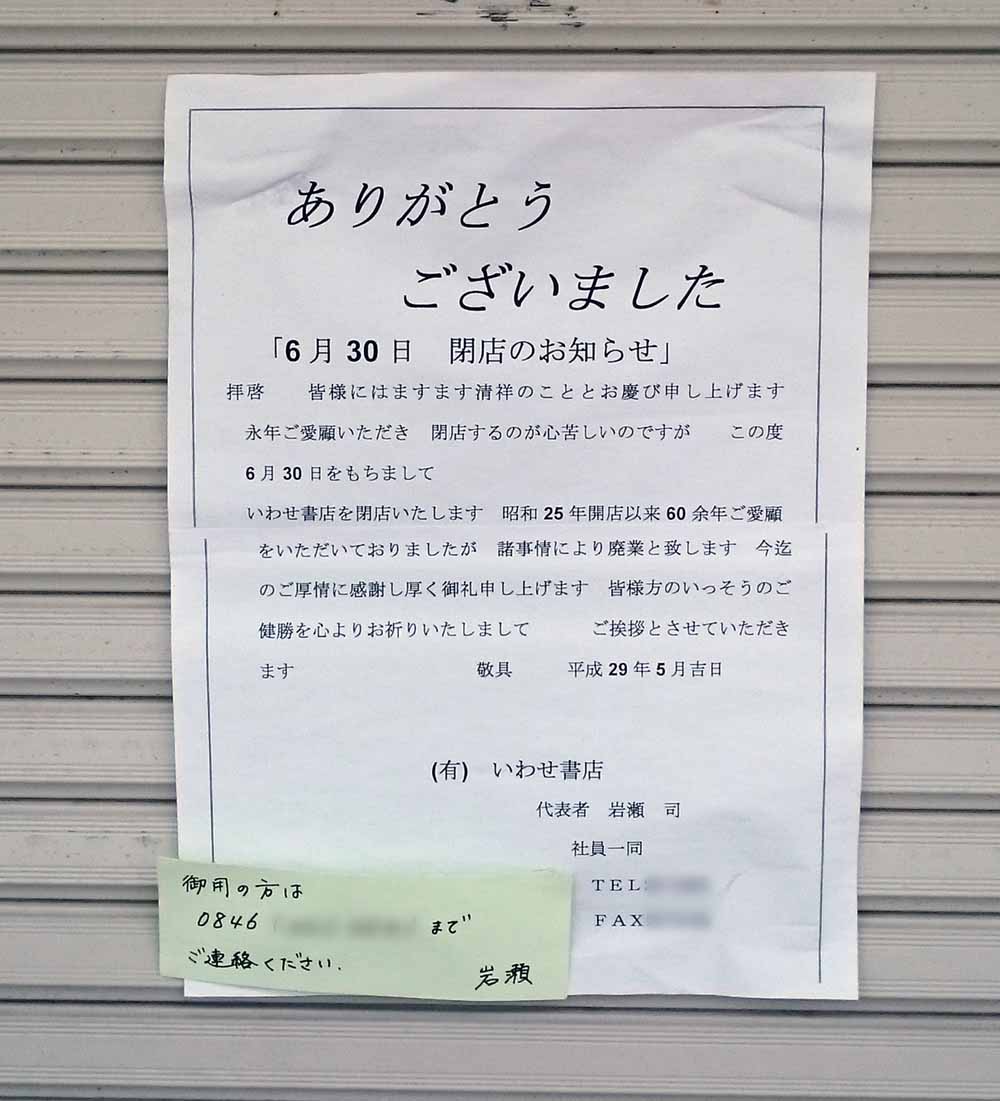 ありがとう
ございました
「6月30日　閉店のお知らせ」
拝啓　　皆様にはますます清祥のこととお慶び申し上げます
永年ご愛顧いただき　閉店するのが心苦しいのですが　　この度
6月30日をもちまして
いわせ書店を閉店いたします　昭和25年開店以来60余年ご愛顧
をいただいておりましたが　諸事情により廃業と致します　今迄
のご厚情に感謝し厚く御礼申し上げます　皆様方のいっそうのご
健勝を心よりお祈りいたしまして　　　ご挨拶とさせていただき
ます　　　　　　　　　　敬具　　　平成29年5月吉日
(有)　いわせ書店
代表者　岩瀬　司
社員一同
TEL
FAX
御用の方は
0846 まで
ご連絡ください.
岩瀬